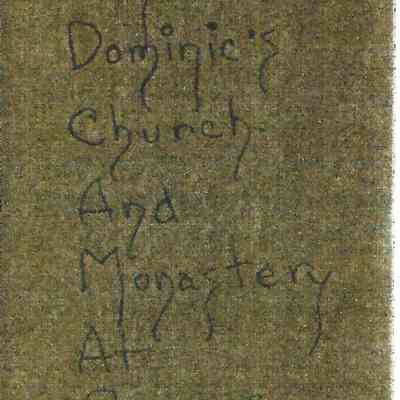 Dominic's
Church
And
Monastery
At